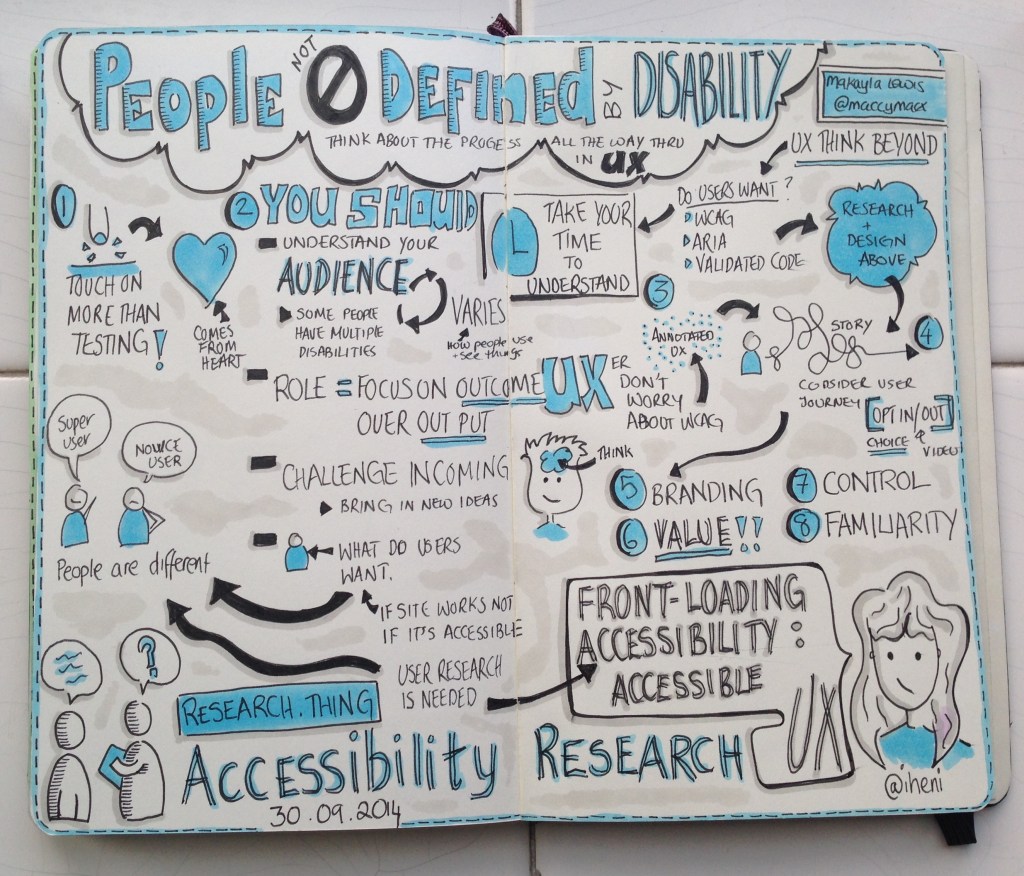 People NOT Defined BY DISABILITY
THINK ABOUT THE PROGESS ALL THE WAY THRU
IN UX
Makayla Lewis
@maccymacx
UX THINK BEYOND
1
TOUCH ON
MORE THAN
TESTING!
COMES
FROM
HEART
2 YOU SHOULD
UNDERSTAND YOUR
AUDIENCE
SOME PEOPLE
HAVE MULTIPLE
DISABILITIES
VARIES
HOW PEOPLE USE
+ SEE THINGS
TAKE YOUR
TIME
TO
UNDERSTAND
DO USERS WANT?
WCAG
ARIA
VALIDATED CODE
RESEARCH
+
DESIGN
ABOVE
3
ANNOTATED
UX
STORY
4
CONSIDER USER
JOURNEY
[OPT IN/OUT]
CHOICE &
VIDEO
ROLE = FOCUS ON OUTCOME
OVER OUT PUT
UXER
DON'T
WORRY
ABOUT WCAG
Super
user
NOVICE
USER
People are different
CHALLENGE INCOMING
BRING IN NEW IDEAS
WHAT DO USERS
WANT.
IF SITE WORKS NOT
IF IT'S ACCESSIBLE
USER RESEARCH
IS NEEDED
THINK
5 BRANDING
6 VALUE!!
7 CONTROL
8 FAMILIARITY
FRONT-LOADING
ACCESSIBILITY:
ACCESSIBLE
UX
@iheni
?
RESEARCH.THING
Accessibility RESEARCH
30.09.2014